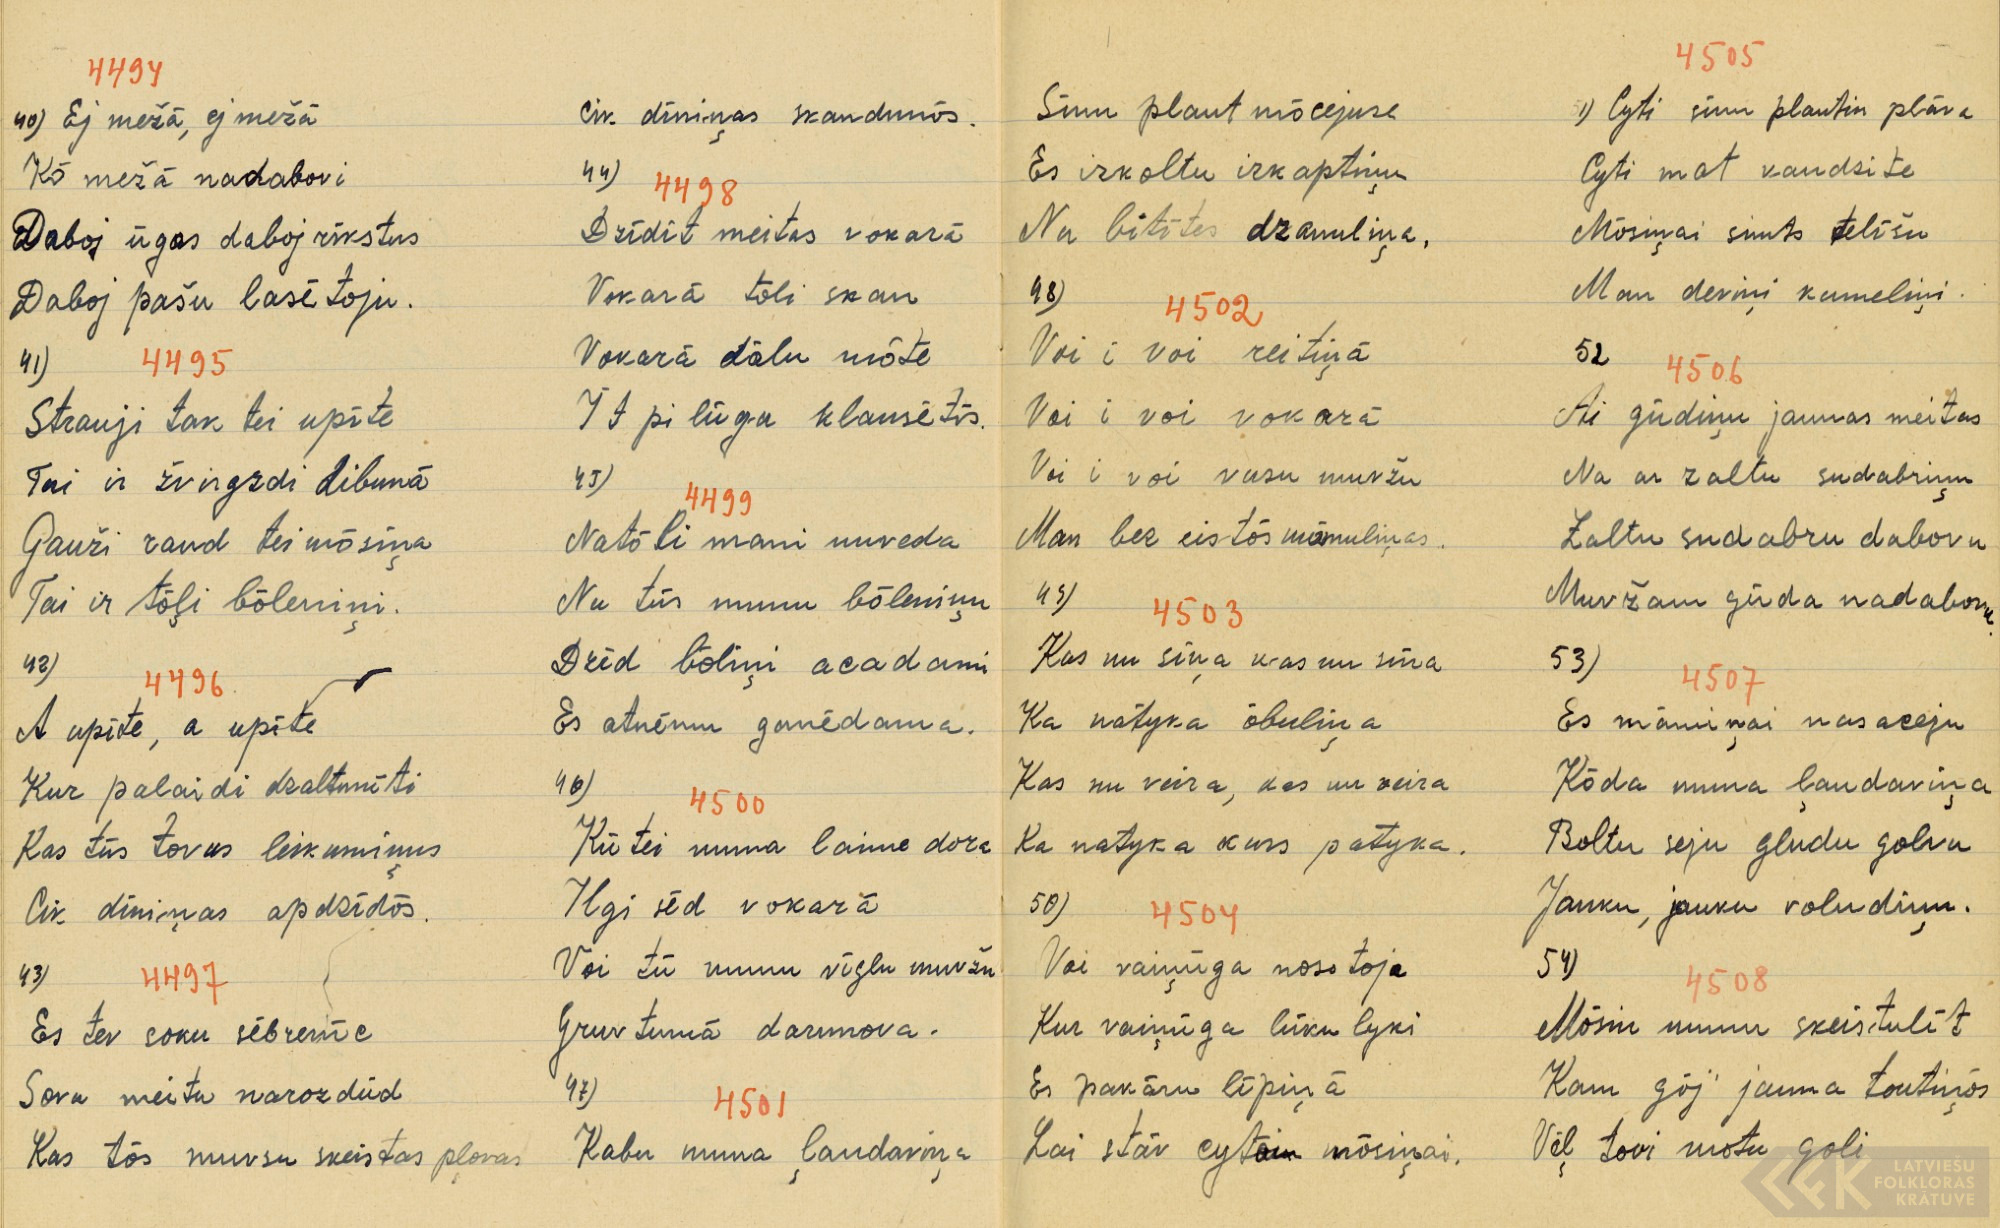 4494
40) Ej mežā, ej mežā
Kō mežā nadabovi
Daboj ūgas daboj rīkstus
Daboj pašu lasētoju.
41) 4495
Strauji tak tei upīte
Tai ir žvirgzdi dibunā
Gauži raud tei mōsiņa
Tai ir tōļi bōleniņi.
42) 4496
A upīte, a upīte
Kur palaidi dzaltunīti
Kas tūs tovus leikumiņus
Cik dīniņas apdzīdōs.
43) 4497
Es tev soku sēbrenīc
Sovu meitu narozdūd
Kas tōs muvsu skeistas pļovas
Cik dīniņas skandunōs.
44) 4498
Dzīdit meitas vokarā
Vokarā tōli skan
Vokarā dālu mōte
Īt pi lūga klausētōs.
45) 4499
Natōli mani nuveda
Nu tūs munu bōleniņu
Dzīd bōliņi acadami
Es atnēmu gunēdama.
46) 4500
Kū tei muna laime dora
Ilgi sēd vokarā
Voi tū munu vīglu muvžu
Gruvtumā darunova.
47) 4501
Kabu muna ļaudaviņa
Sīnu plaut mōcejuse
Es izkoltu izkaptiņu
Nu bitītes dzanuliņa.
48) 4502
Voi i voi reitiņā
Voi i voi vokarā
Voi i voi vusu muvžu
Man bez eistōs mōmuliņas.
49) 4503
Kas nu sīņa kas nu sīna
Ka natyka ōbuliņa
Kas nu veira, kas nu veira
Ka natyka kurs patyka.
50) 4504
Voi vaiņūga nosotoja
Kur vaiņūga lūku lyki
Es pakāru līpiņā
Lai stāv cytai mōsiņai.
4505
1) Cyti sīnu plautin plāva
Cyti mat kaudzite
Mōsiņai simts telīšu
Man deviņi kumeliņi.
52 4506
Ai gūdiņu jaunas meitas
Na ar zaltu sudabriņu
Zaltu sudabru dabovu
Muvžam gūda nadabovu.
53) 4507
Es māmiņai nasaceju
Kōda muna ļaudaviņa
Boltu seju gludu golvu
Jauku, jauku voludiņu.
54) 4508
Mōsiņ munu skeistulīt
Kam gōj' jauna tautiņōs
Vēļ tovi motu goli
LATVIEŠU
FOLKLORAS
KRĀTUVE